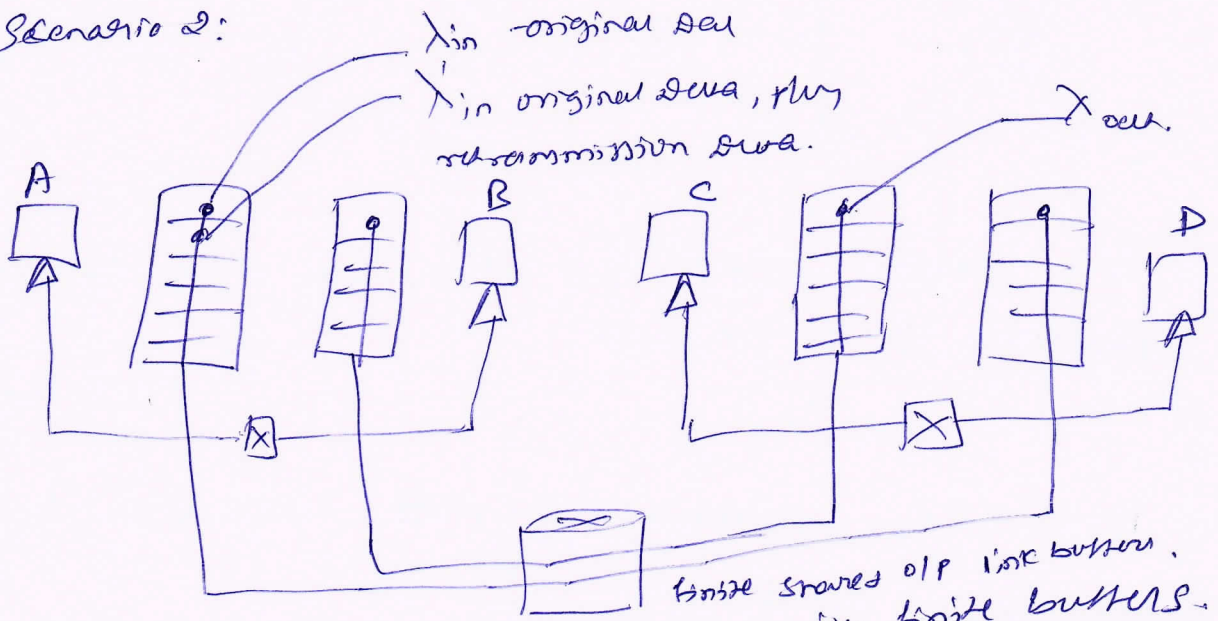 Scenario 2:
λin original
λ'in original , plus
retransmission
λout.
A
B
C
D
finite shared o/p link buffers.
finite buffers.